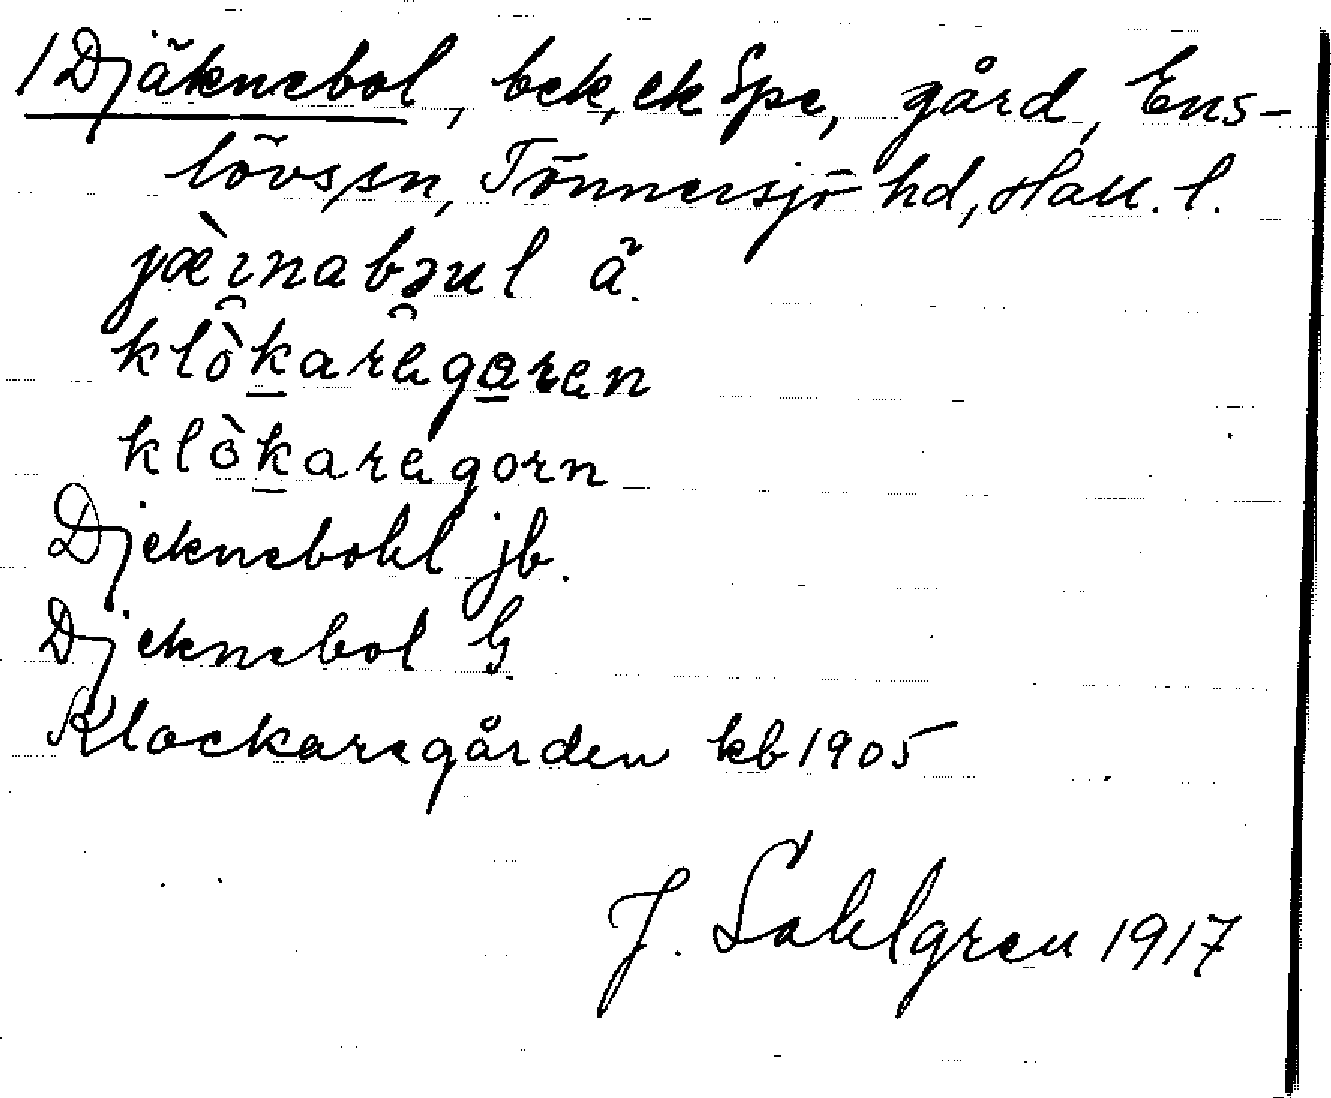 /Djäknebol, bek, ek Spe, gård, Ens-
lövs sn, Tönnersjö hd, Hall. l.
jæ̀ı̯nabəu̯l ä.
klòkarägaren
klòkaregorn
Djeknebohl jb.
Djeknebol G
Klockaregården kb 1905
J. Sahlgren 1917